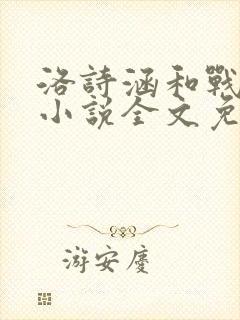 洛詩涵和戰
小說全文免
游安慶